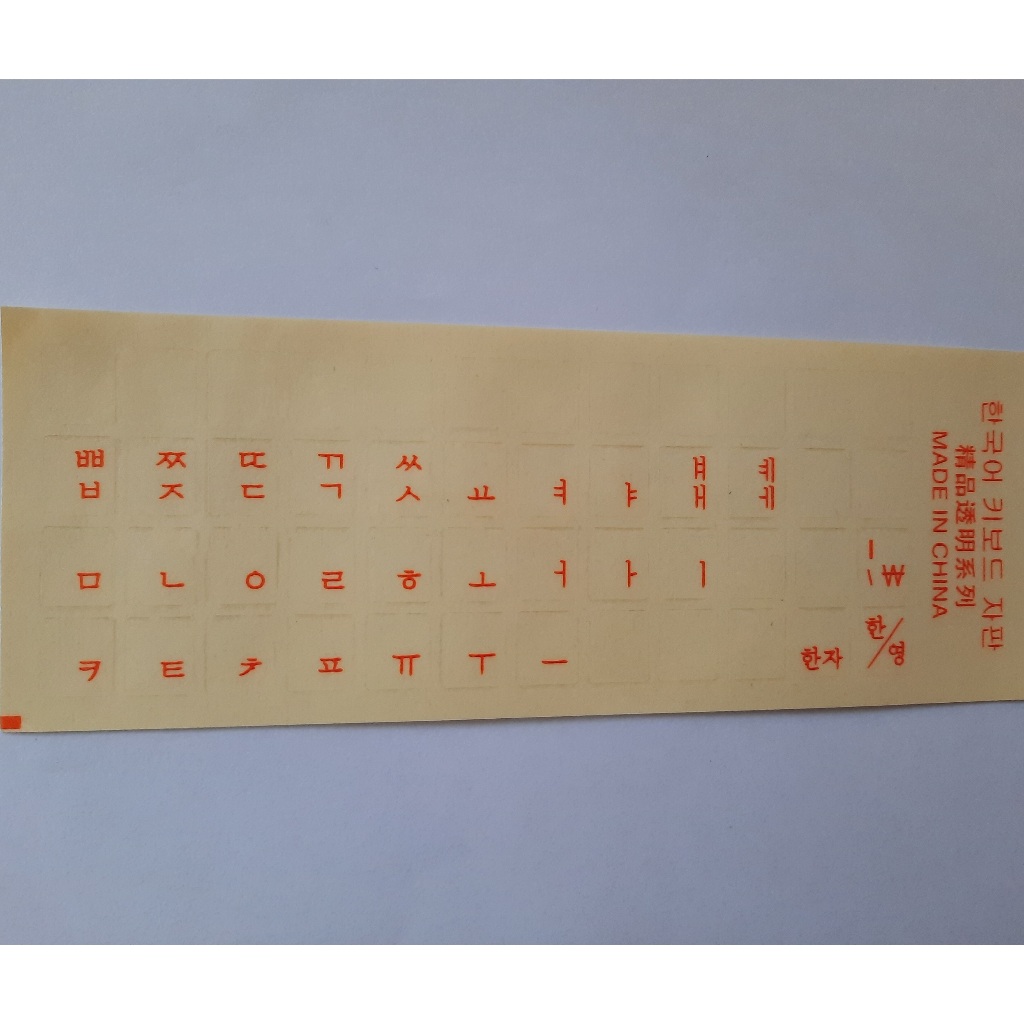 ㅃ ㅉ ㄸ ㄲ ㅆ ㅒ ㅖ
ㅂ ㅈ ㄷ ㄱ ㅅ ㅛ ㅕ ㅑ ㅐ ㅔ
ㅁ ㄴ ㅇ ㄹ ㅎ ㅗ ㅓ ㅏ ㅣ | \ ₩
ㅋ ㅌ ㅊ ㅍ ㅠ ㅜ ㅡ 한자 한/영
한국어 키보드 자판
精品透明系列
MADE IN CHINA